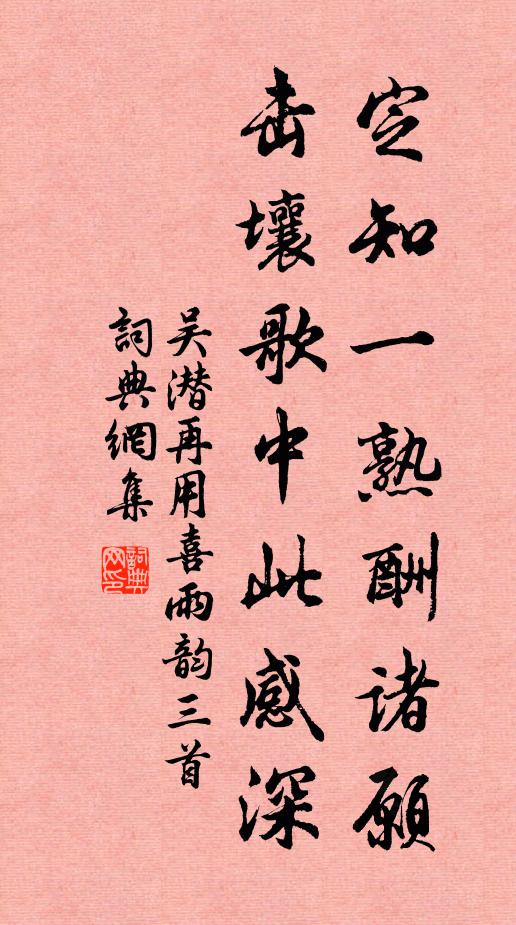 定知一熟酬诸愿
击壤歌中此感深
吴潜再用喜雨韵三首
詞典網集
詞典網印